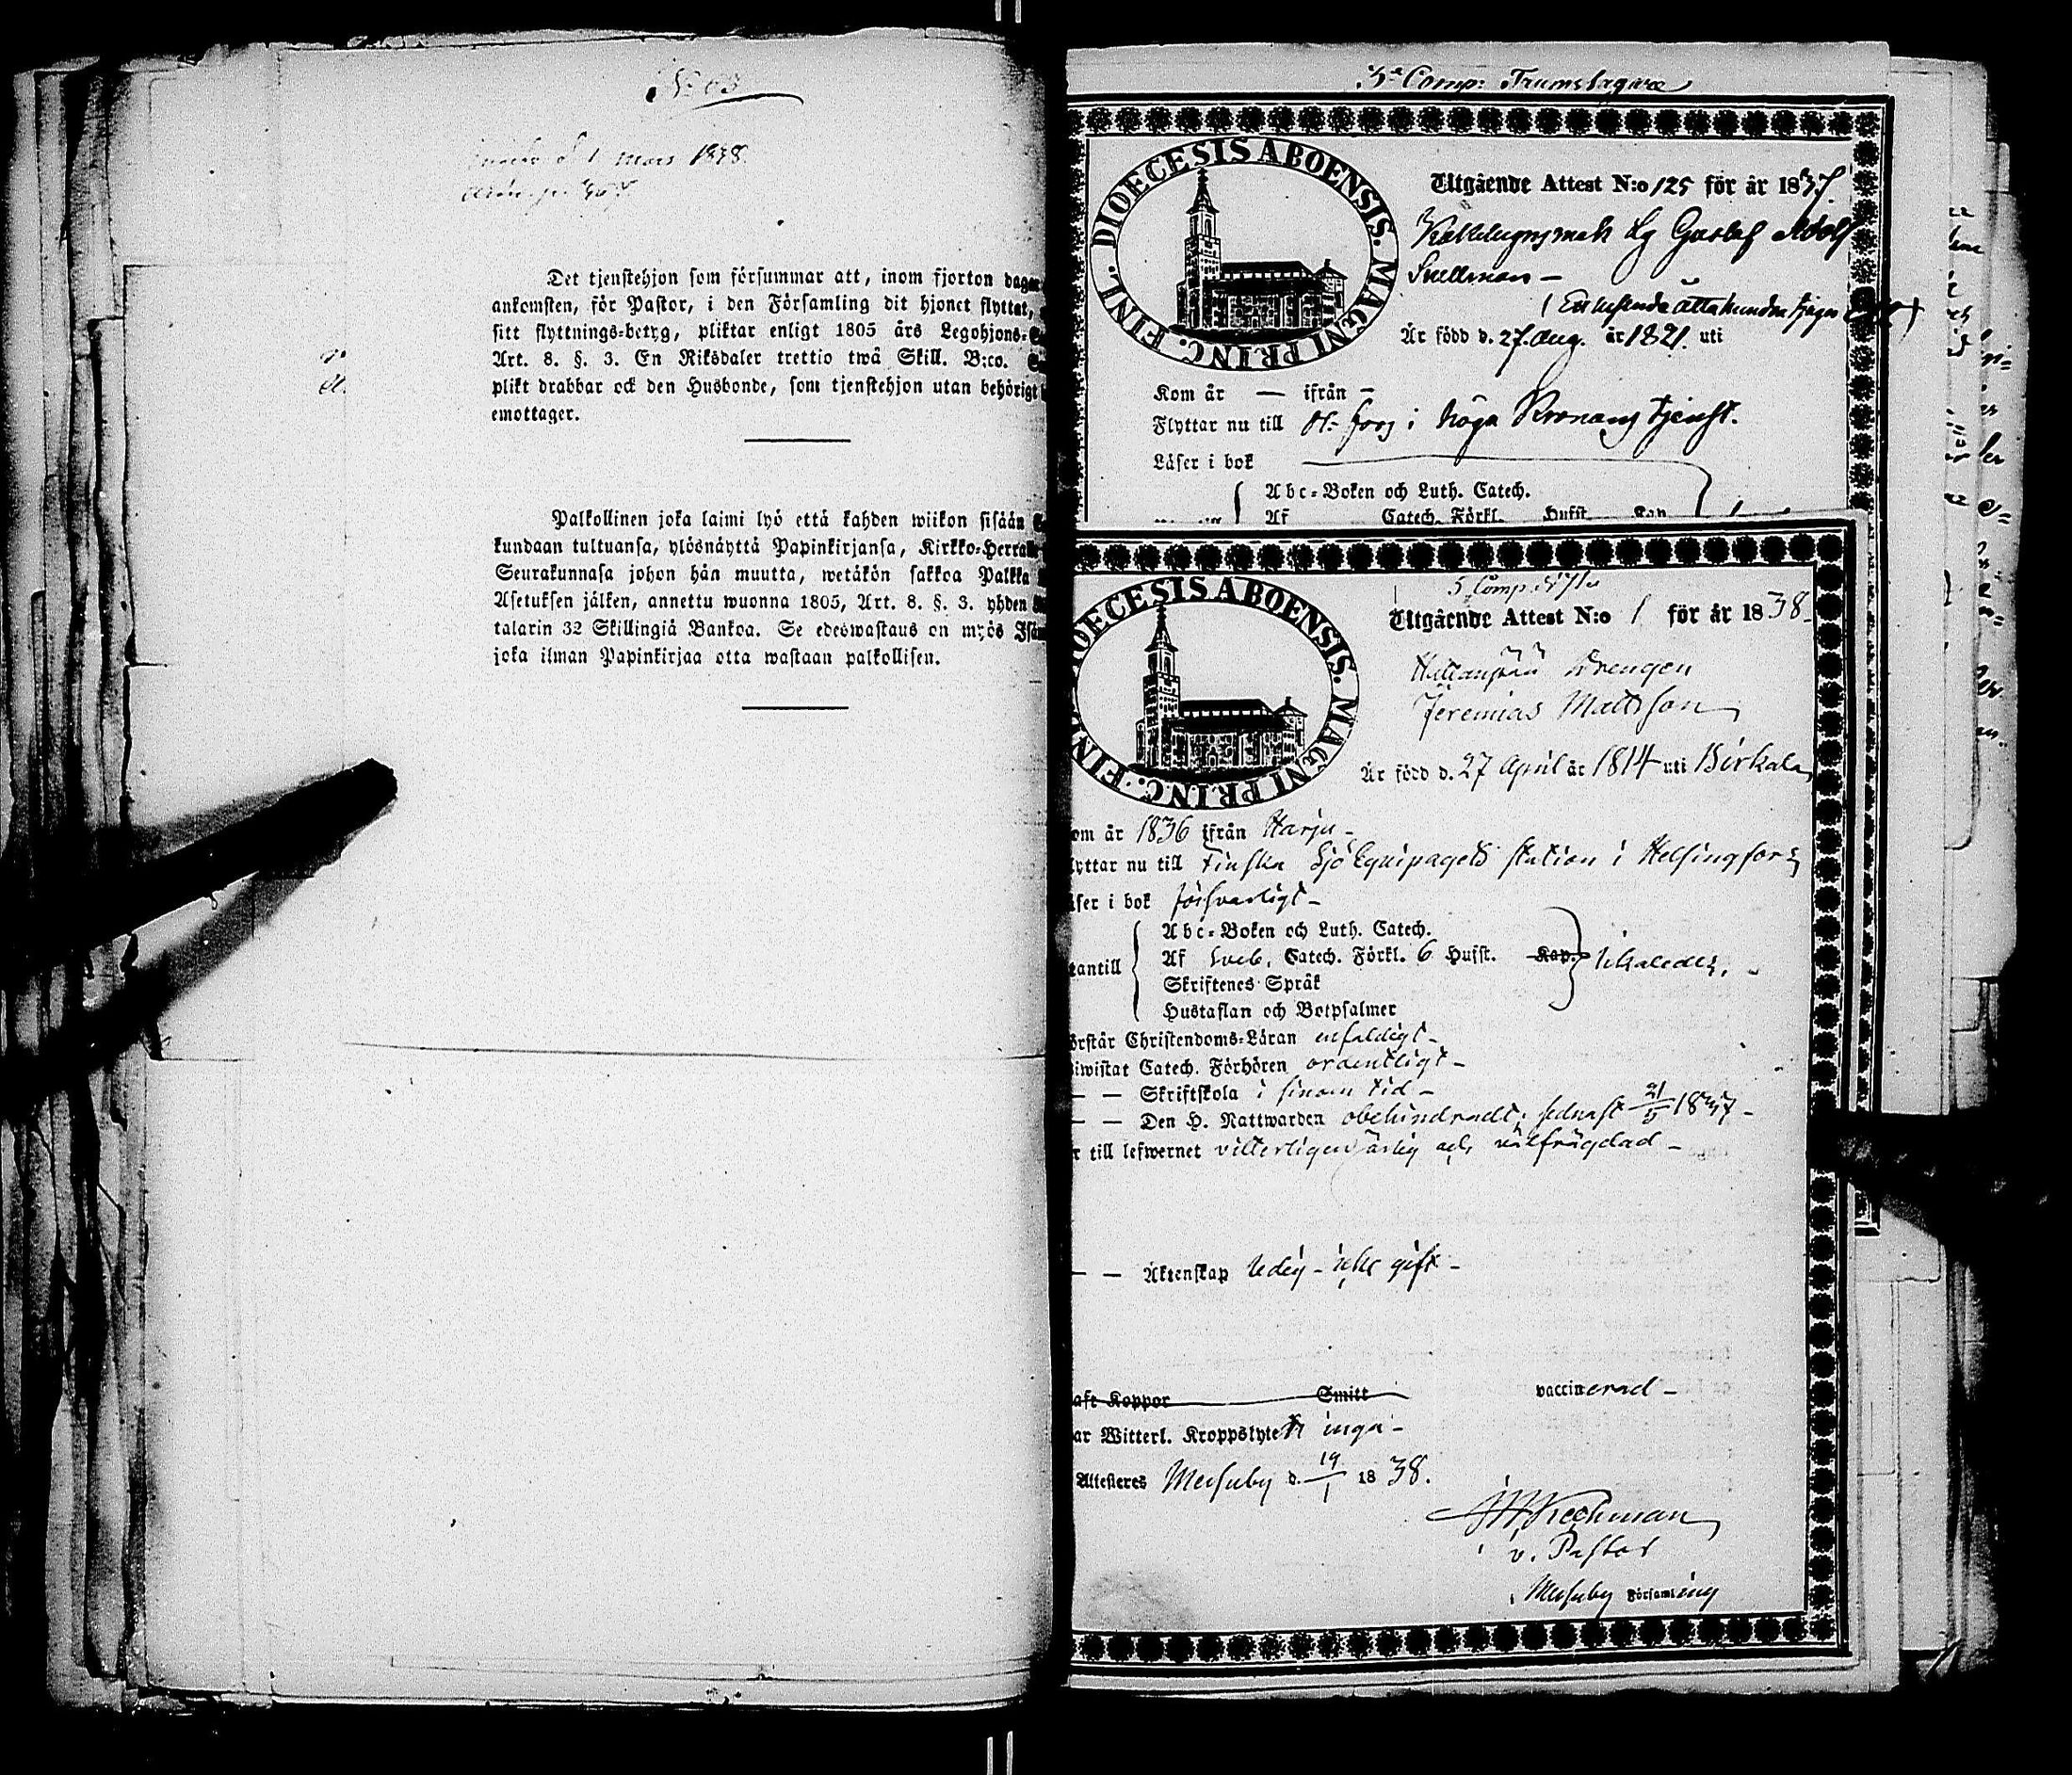 No 63
d 1 Mars 1838.
Det tjenstehjon som försummar att, inom fjorton dagar
ankomsten, för Pastor, i den Församling dit hjonet flyttat,
sitt flyttnings-betyg, pliktar enligt 1805 års Legohjons-
Art. 8. §. 3. En Riksdaler trettio twå Skill. B:co.
plikt drabbar ock den Husbonde, som tjenstehjon utan behörigt
emottager.
Palkollinen joka laimi lyö että kahden wiikon sisään
kundaan tultuansa, ylösnäyttä Papinkirjansa, Kirkko-Herralle
Seurakunnasa johon hän muutta, wetäkön sakkoa Palkka
Asetuksen jälken, annettu wuonna 1805, Art. 8. §. 3. yhden
talarin 32 Skillingiä Bankoa. Se edeswastaus on myös Isän
joka ilman Papinkirjaa otta wastaan palkollisen.
5e Comp: Trumslagare
DIOECESIS ABOENSIS. MAGNI PRINC. FINL.
Utgående Attest N:o 125 för år 1837.
Kakelugnsmak Lg Gustaf Adolf
Snellman –
Är född d. 27 Aug. år 1821. uti
Kom år — ifrån –
Flyttar nu till H:fors i Höga Kronans tjenst.
Läser i bok
Abc-Boken och Luth. Catech.
Af Catech. Förkl. Hufst. Kap
5 Comp.
DIOECESIS ABOENSIS. MAGNI PRINC. FIN
Utgående Attest N:o 1 för år 1838.
Drengen
Jeremias Mattsson
Är född d. 27 April år 1814 uti Birkala
om år 1836 ifrån Harju –
lyttar nu till Finska Sjö Equipagets station i Helsingfors
äser i bok försvarligt –
Abc-Boken och Luth. Catech.
tantill Af Sveb. Catech. Förkl. 6 Hufst. Kap. likaledes.
Skriftenes Språk
Hustaflan och Botpsalmer
örstår Christendoms-Läran enfaldigt –
iwistat Catech. Förhören ordentligt –
— — Skriftskola i sinom tid –
— — Den H. Nattwarden obehindradt, sednast 21/5 1837 –
r till lefwernet vitterligen ärlig och välfrägdad –
— — Äktenskap ledig – icke gift –
aft Koppor Smitt vaccinerad –
ar Witterl. Kroppslyten inga –
Attesteres Messuby d. 19/1 1838.
v. Pastor
Messuby Församling